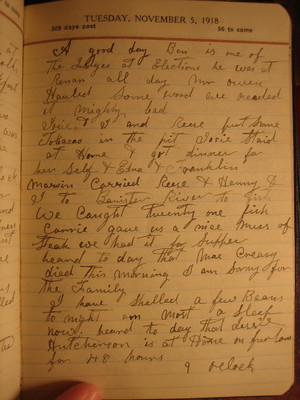 TUESDAY, NOVEMBER 5, 1918
309 days past 56 to come
A good day Ben is one of
the Judges at Elections he was at
Renan all day Mr Owen
Hauled Some wood we needed
it Mighty bad
& I and Reece put Some
Tobacco in the pit Josie Staid
at Home & got dinner for
her Self & Edna & Franklin
Marvin Carried Reece & Henny &
I to Banister River to fish
We Caught twenty one fish
Connie gave us a nice Mess of
Steak we had it for Supper
heard to day that Mac Creasy
died this Morning I am Sorry for
the Family
I have Shelled a few Beans
to night am Most a Sleep
now. heard to day that
Hutcherson is at Home on furlow
for 48 hours
9 oclock